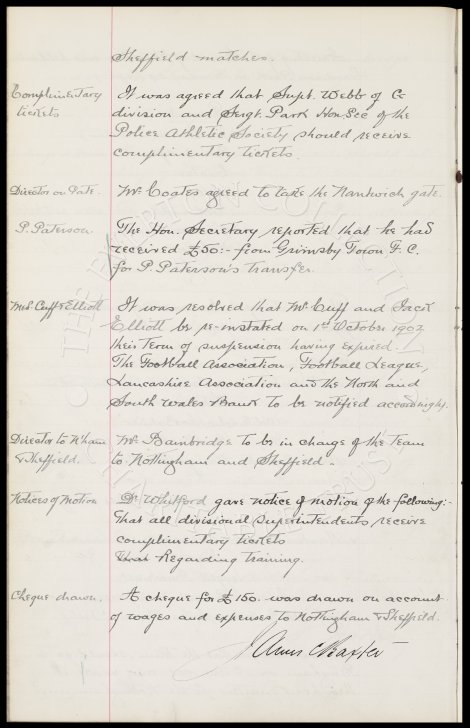 Sheffield matches.
Complimentary tickets
It was agreed that Supt. Webb of C
division and Sergt. Park Hon Sec of the
Police Athletic Society should receive
complimentary tickets.
Director on Gate.
Mr Coates agreed to take the Nantwich gate.
P. Paterson.
The Hon. Secretary reported that he had
received £50:- from Grimsby Town F.C.
for P. Paterson's transfer.
Mess Cuff & Elliott
It was resolved that Mr Cuff and Jack
Elliott be re-instated on 1st October 1902
their term of suspension having expired.
The Football Association, Football League,
Lancashire Association and the North and
South Wales Bank to be notified accordingly.
Director to N'ham
& Sheffield.
Mr Bainbridge to be in charge of the team
to Nottingham and Sheffield.
Notices of Motion
Dr Whitford gave notice of motion of the following:
that all divisional superintendents receive
complimentary tickets
That Regarding training.
Cheque drawn.
A cheque for £150. was drawn on account
of wages and expenses to Nottingham & Sheffield.
James C Baxter